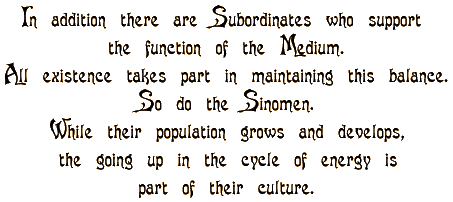 In addition there are Subordinates who support
the function of the Medium.
All existence takes part in maintaining this balance.
So do the Sinomen.
While their population grows and develops,
the going up in the cycle of energy is
part of their culture.